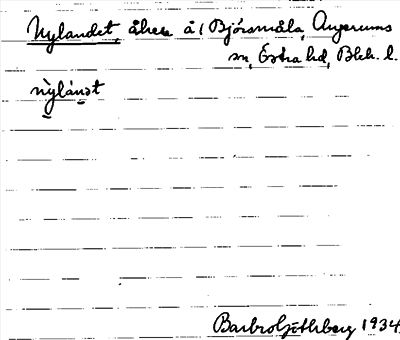 Nylandet, åker å / Björsmåla, Augerums
sn, Östra hd, Blek. l.
nỳlánət
Barbro Götlberg 1934